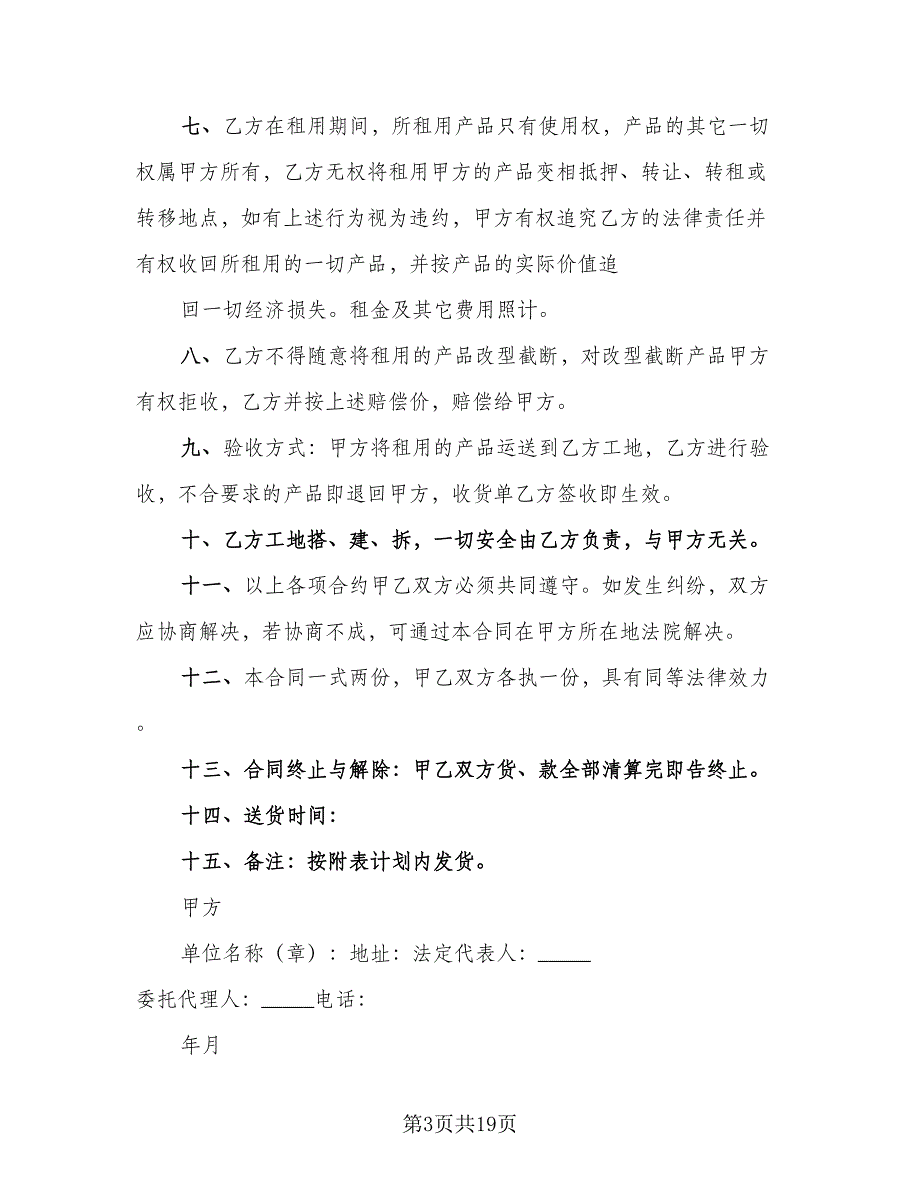 七、乙方在租用期间，所租用产品只有使用权，产品的其它一切
权属甲方所有，乙方无权将租用甲方的产品变相抵押、转让、转租或
转移地点，如有上述行为视为违约，甲方有权追究乙方的法律责任并
有权收回所租用的一切产品，并按产品的实际价值追
回一切经济损失。租金及其它费用照计。
八、乙方不得随意将租用的产品改型截断，对改型截断产品甲方
有权拒收，乙方并按上述赔偿价，赔偿给甲方。
九、验收方式：甲方将租用的产品运送到乙方工地，乙方进行验
收，不合要求的产品即退回甲方，收货单乙方签收即生效。
十、乙方工地搭、建、拆，一切安全由乙方负责，与甲方无关。
十一、以上各项合约甲乙双方必须共同遵守。如发生纠纷，双方
应协商解决，若协商不成，可通过本合同在甲方所在地法院解决。
十二、本合同一式两份，甲乙双方各执一份，具有同等法律效力
。
十三、合同终止与解除：甲乙双方货、款全部清算完即告终止。
十四、送货时间：
十五、备注：按附表计划内发货。
甲方
单位名称（章）：地址：法定代表人：_____
委托代理人：_____电话：
年月
第3页共19页